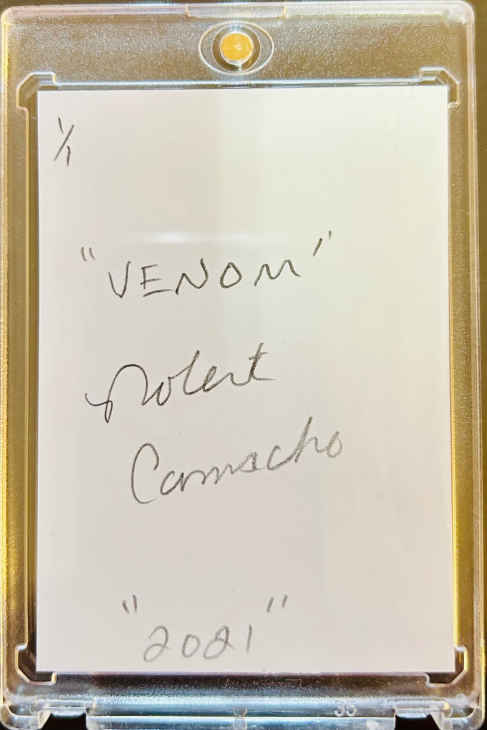 1/1
"VENOM"
Robert
Camacho
"2021"
35